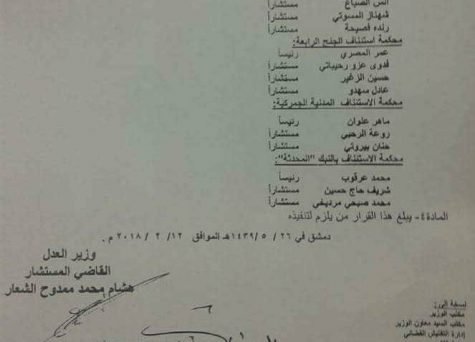 أنس الصباغ مستشاراً
شهناز المسوتي مستشاراً
رنده فصيحة مستشاراً
محكمة استئناف الجنح الرابعة:
عمر المصري رئيساً
فدوى عزو رحيباني مستشاراً
حسين الزغير مستشاراً
عادل سهدو مستشاراً
محكمة الاستئناف المدنية الجمركية:
ماهر علوان رئيساً
روعة الرحبي مستشاراً
حنان بيروتي مستشاراً
محكمة الاستئناف بالنبك "المحدثة":
محمد عرقوب رئيساً
شريف حاج حسين مستشاراً
محمد صبحي مستشاراً
المادة٤- يبلغ هذا القرار من يلزم لتنفيذه
دمشق في ٢٦ / ٥ / ١٤٣٩هـ الموافق ١٢ / ٢ / ٢٠١٨ م.
وزير العدل
القاضي المستشار
هشام محمد ممدوح الشعار
مكتب الوزير
مكتب السيد معاون الوزير
إدارة التفتيش القضائي